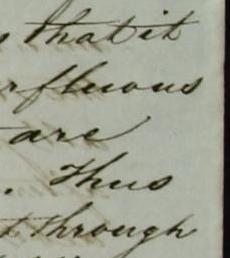 s that it
rfluous
are
. Thus
t through